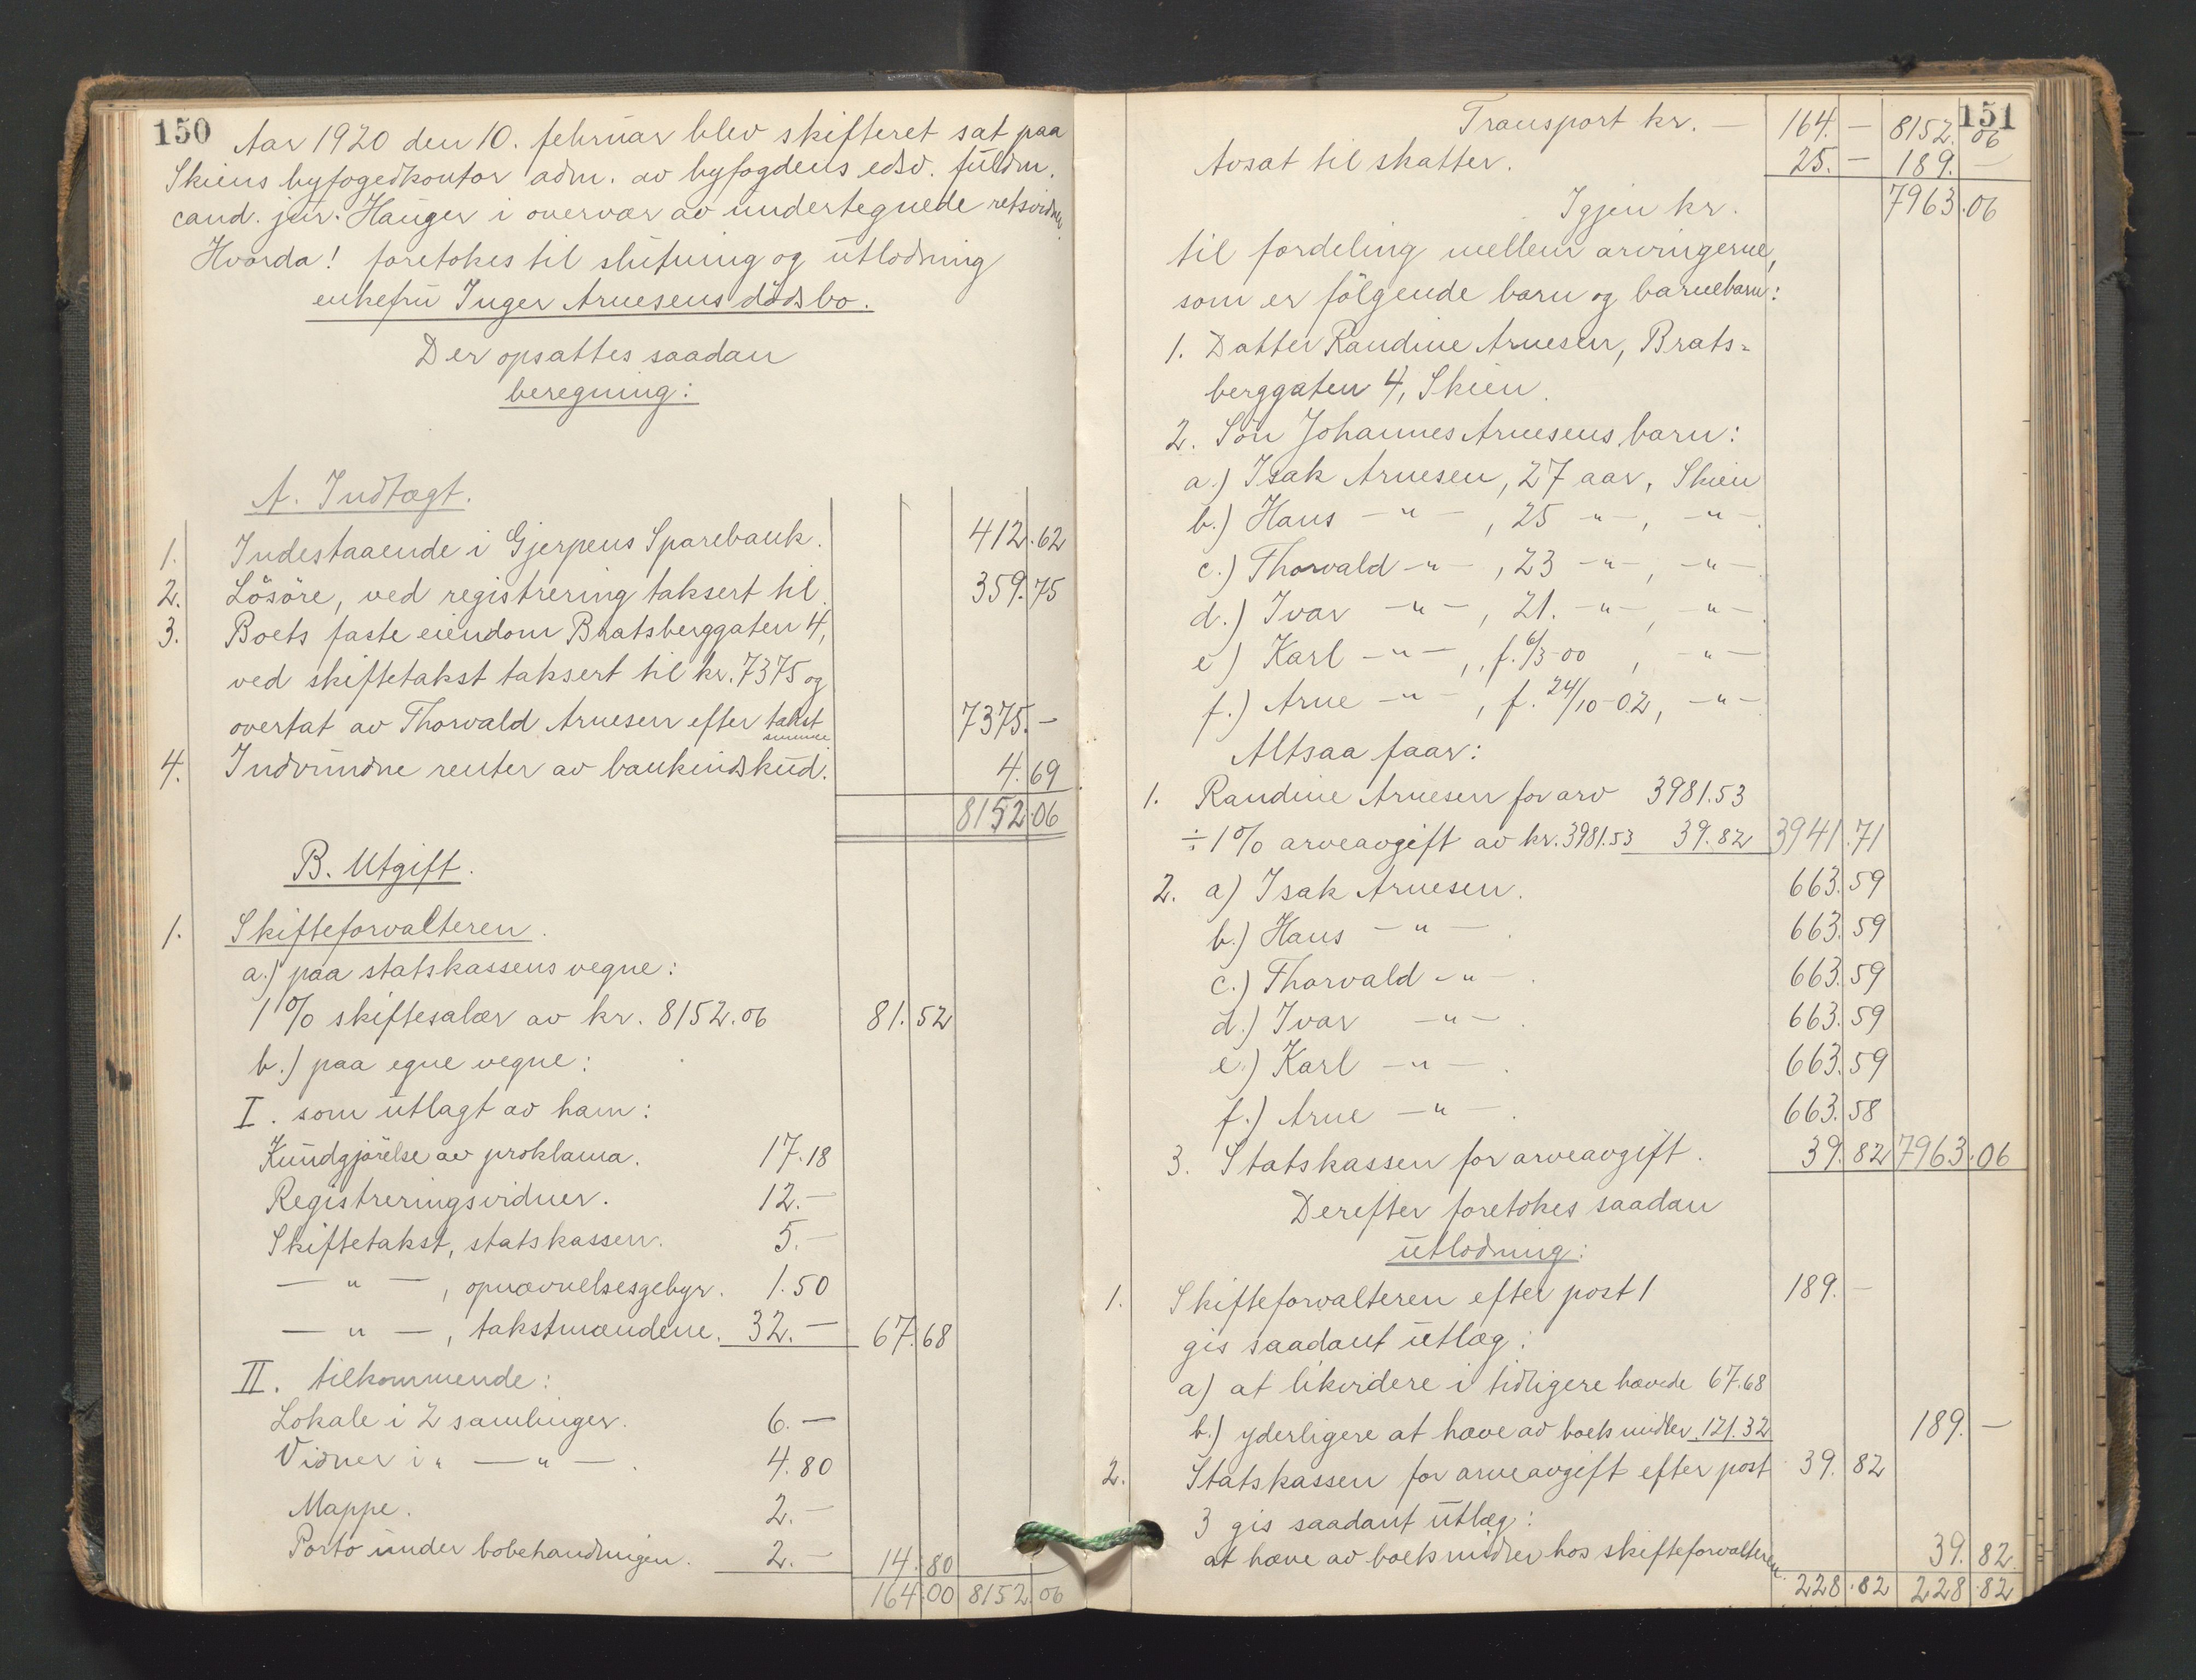 150
Aar 1920 den 10. februar blev skifteret sat paa
Skiens byfogedkontor adm. av byfogdens edsv. fuldm.
cand. jur. Hauger i overvær av undertegnede retsvidner.
Hvorda! foretokes til slutning og utlodning
enkefru Inger Arnesens dødsbo.
Der opsattes saadan
beregning:
A. Indtægt.
1. Indestaaende i Gjerpens Sparebank. 412.62
2. Løsøre, ved registrering taksert til. 359.75
3. Boets faste eiendom Bratsberggaten 4,
ved skiftetakst taksert til kr. 7375 og
overtat av Thorvald Arnesen efter takst
summe 7375.—
4. Indvundne renter av bankindskud. 4.69
8152.06
B. Utgift.
1. Skifteforvalteren.
a.) paa statskassens vegne:
1 % skiftesalær av kr. 8152.06 81.52
b.) paa egne vegne:
I. som utlagt av ham:
Kundgjørelse av proklama. 17.18
Registreringsvidner. 12.—
Skiftetakst, statskassen. 5.—
— " —, opnævnelsesgebyr. 1.50
— " —, takstmændene. 32.— 67.68
II. tilkommende:
Lokale i 2 samlinger. 6.—
Vidner i " — " —. 4.80
Mappe. 2.—
Porto under bobehandlingen. 2.— 14.80
164.00 8152.06
151
Transport kr. — 164.— 8152.06
Avsat til skatter. 25.— 189.—
Igjen kr. 7963.06
til fordeling mellem arvingerne,
som er følgende barn og barnebarn:
1. Datter Randine Arnesen, Brats-
berggaten 4, Skien.
2. Søn Johannes Arnesens barn:
a.) Isak Arnesen, 27 aar, Skien
b.) Hans — " —, 25 — " —, — " —.
c.) Thorvald — " —, 23 — " —, — " —
d.) Ivar — " —, 21. — " —, — " —.
e) Karl — " —, f. 6/3-00, — " —
f.) Arne — " —, f. 24/10-02, — " —
Altsaa faar:
1. Randine Arnesen for arv 3981.53
÷ 1 % arveavgift av kr. 3981.53 39.82 3941.71
2. a) Isak Arnesen. 663.59
b.) Hans — " —. 663.59
c.) Thorvald — " —. 663.59
d.) Ivar — " —. 663.59
e.) Karl — " —. 663.59
f.) Arne — " —. 663.58
3. Statskassen for arveavgift. 39.82 7963.06
Derefter foretokes saadan
utlodning:
1. Skifteforvalteren efter post 1 189.—
gis saadant utlæg:
a) at likvidere i tidligere hævede 67.68
b.) yderligere at hæve av boets midler. 121.32 189.—
2. Statskassen for arveavgift efter post 39.82
3 gis saadant utlæg:
at hæve av boets midler hos skifteforvalteren. 39.82
228.82 228.82